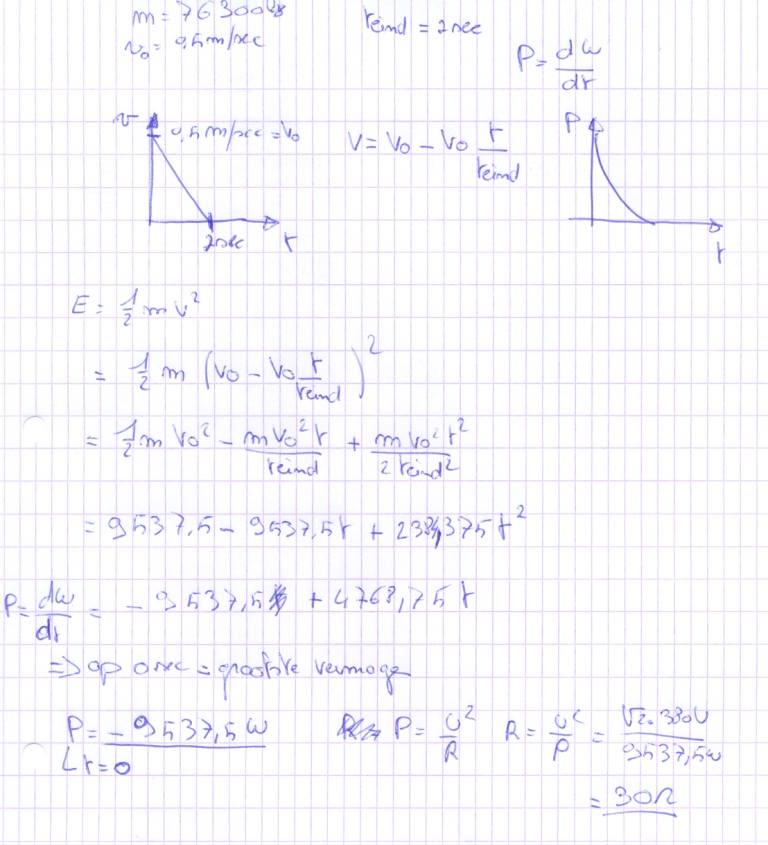 m = 76300 kg
v₀ = 0,5 m/sec
teind = 2 sec
P = dw/dt
v
0,5 m/sec = v₀
2 sec
t
V = V₀ - V₀ t/teind
P
t
E = 1/2 m v²
= 1/2 m (v₀ - v₀ t/teind)²
= 1/2 m v₀² - m v₀² t/teind + m v₀² t²/2 teind²
= 9537,5 - 9537,5t + 2384,375 t²
P = dw/dt = - 9537,5 + 4768,75 t
=> op 0 sec = grootste vermogen
P = - 9537,5 W
t = 0
P = U²/R
R = U²/P = √2. 380V/9537,5w
= 30Ω